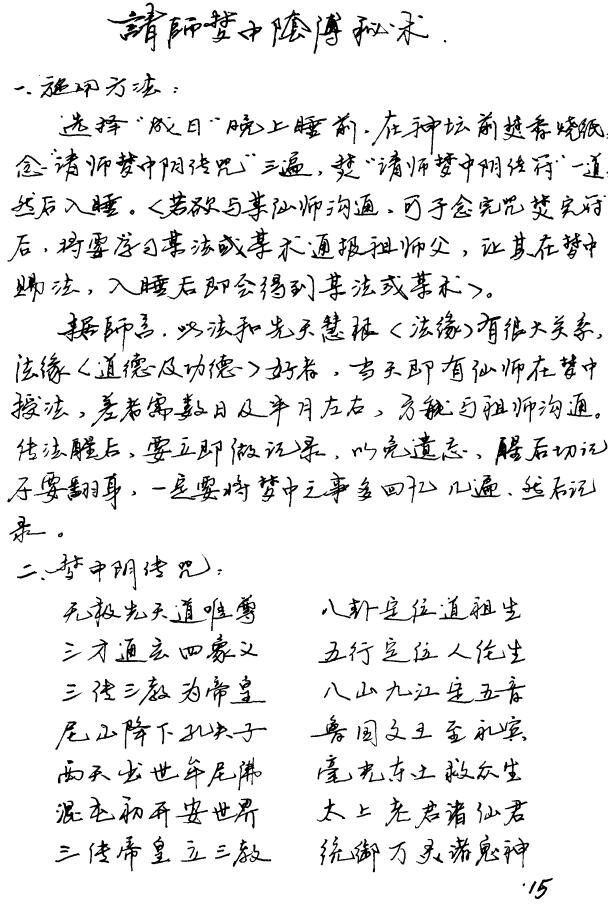 請師梦中陰傳秘术.
一、施用方法：
选择“成日”晚上睡前，在神坛前焚香烧纸，
念“请师梦中阴传咒”三遍，焚“请师梦中阴传符”一道，
然后入睡。〈若欲与某仙师沟通，可于念完咒焚完符
后，将要学习某法或某术通报祖师父，让其在梦中
赐法，入睡后即会得到某法或某术〉。
据師言，此法和先天慧根〈法缘〉有很大关系，
法缘〈道德及功德〉好者，当天即有仙师在梦中
授法，差者需数日及半月左右，方能与祖师沟通。
传法醒后，要立即做记录，以免遗忘，醒后切记
不要翻身，一定要将梦中之事多回忆几遍，然后记
录。
二、梦中阴传咒：
无极先天道唯尊 八卦定位道祖生
三才通玄四象义 五行定位人伦生
三传三教为帝皇 八山九江定五音
尼山降下孔夫子 鲁国文王至礼宾
西天出世牟尼佛 毫光东土救众生
混沌初开安世界 太上老君诸仙君
三传帝皇立三教 统御万灵诸鬼神
15